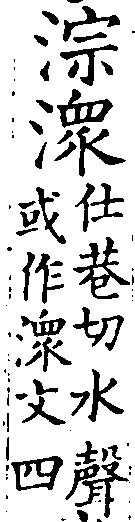 淙潨
仕巷切水聲
或作潨文四